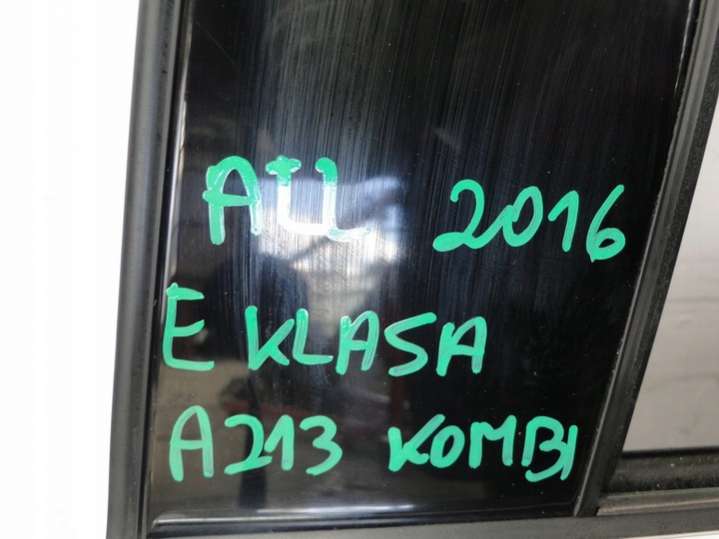 2016
E KLASA
A213 KOMBI